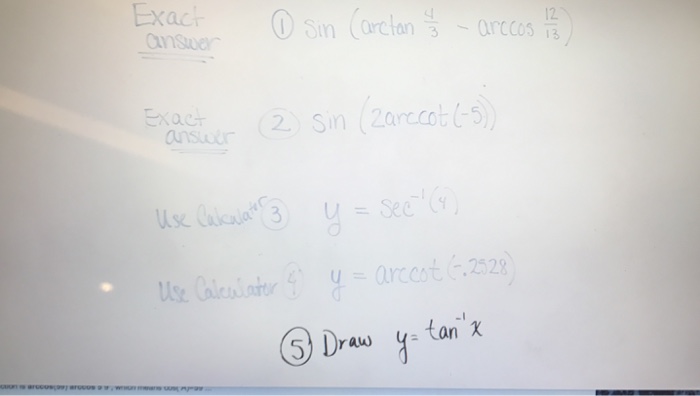 Exact answer ① sin (arctan 4/3 - arccos 12/13)
Exact answer ② sin (2arccot(-5))
Use Calculator ③ y = sec⁻¹(4)
Use Calculator ④ y = arccot (-.2528)
⑤ Draw y = tan⁻¹x